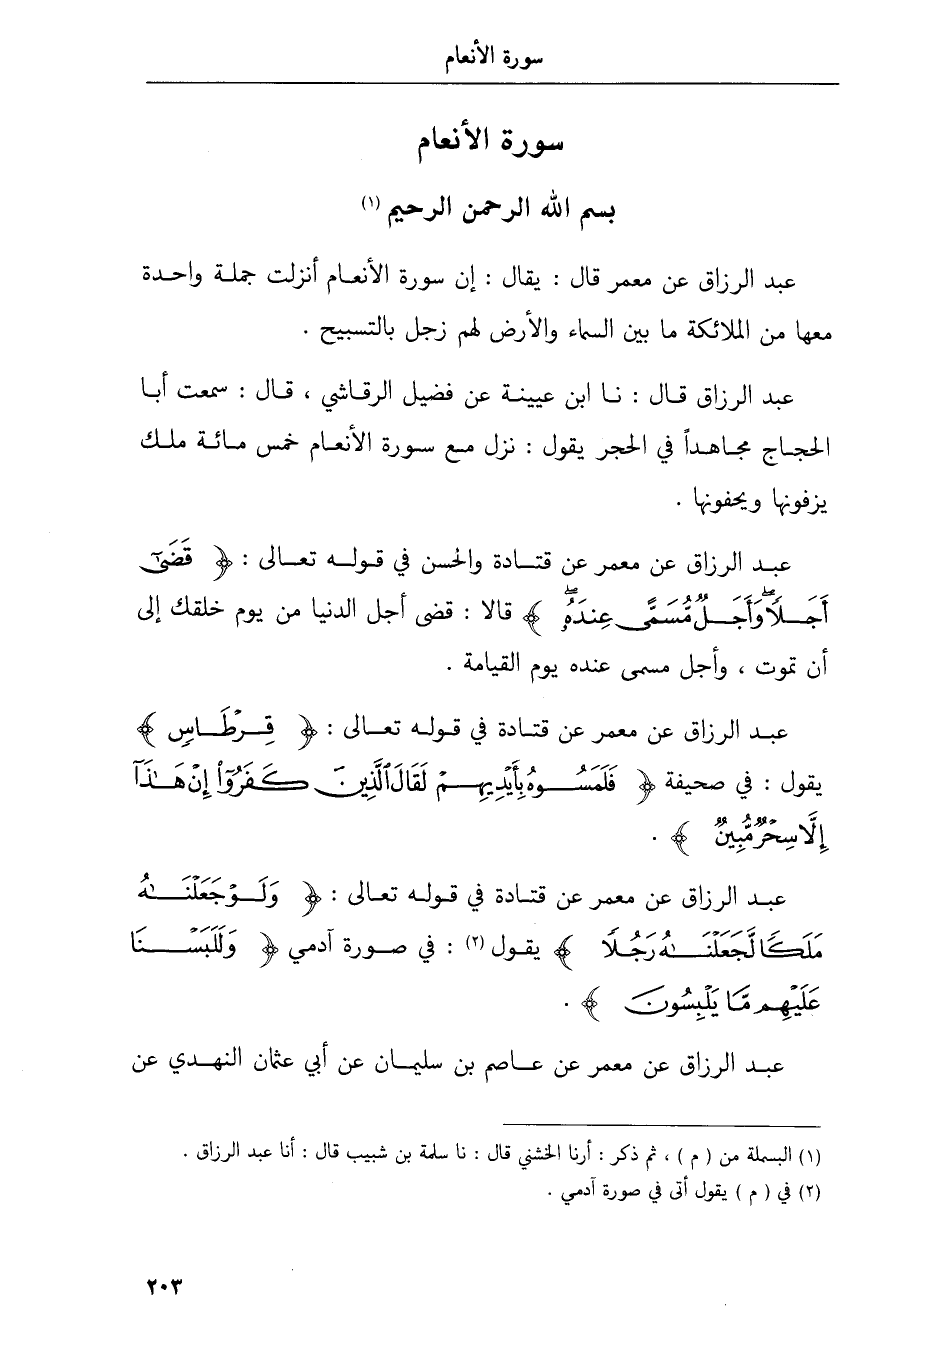 سورة الأنعام
سورة الأنعام
بسم الله الرحمن الرحيم (١)
عبد الرزاق عن معمر قال : يقال : إن سورة الأنعام أنزلت جملة واحدة
معها من الملائكة ما بين السماء والأرض لهم زجل بالتسبيح .
عبد الرزاق قال : نا ابن عيينة عن فضيل الرقاشي ، قال : سمعت أبا
الحجاج مجاهداً في الحجر يقول : نزل مع سورة الأنعام خمس مائة ملك
يزفونها ويحفونها .
عبد الرزاق عن معمر عن قتادة والحسن في قوله تعالى : ﴿ قَضَىٰٓ
أَجَلًاۖ وَأَجَلٌ مُّسَمًّى عِندَهُۥۖ ﴾ قالا : قضى أجل الدنيا من يوم خلقك إلى
أن تموت ، وأجل مسمى عنده يوم القيامة .
عبد الرزاق عن معمر عن قتادة في قوله تعالى : ﴿ قِرْطَاسٍ ﴾
يقول : في صحيفة ﴿ فَلَمَسُوهُ بِأَيْدِيهِمْ لَقَالَ ٱلَّذِينَ كَفَرُوٓا۟ إِنْ هَـٰذَآ
إِلَّا سِحْرٌ مُّبِينٌ ﴾ .
عبد الرزاق عن معمر عن قتادة في قوله تعالى : ﴿ وَلَوْ جَعَلْنَـٰهُ
مَلَكًا لَّجَعَلْنَـٰهُ رَجُلًا ﴾ يقول (٢) : في صورة آدمي ﴿ وَلَلَبَسْنَا
عَلَيْهِم مَّا يَلْبِسُونَ ﴾ .
عبد الرزاق عن معمر عن عاصم بن سليمان عن أبي عثمان النهدي عن
(١) البسملة من ( م ) ، ثم ذكر : أرنا الخشني قال : نا سلمة بن شبيب قال : أنا عبد الرزاق .
(٢) في ( م ) يقول أتى في صورة آدمي .
٢٠٣